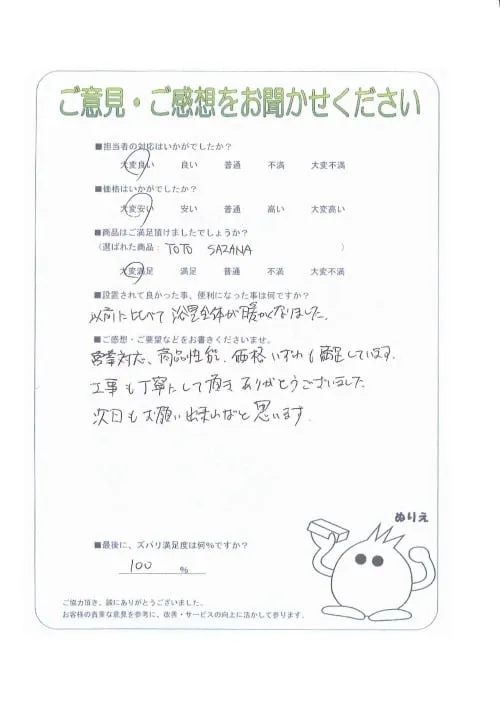 ご意見・ご感想をお聞かせください
■担当者の対応はいかがでしたか？
大変良い 良い 普通 不満 大変不満
■価格はいかがでしたか？
大変安い 安い 普通 高い 大変高い
■商品はご満足頂けましたでしょうか？
（選ばれた商品： TOTO SAZANA ）
大変満足 満足 普通 不満 大変不満
■設置されて良かった事、便利になった事は何ですか？
以前に比べて 浴室全体が 暖かくなりました。
■ご感想・ご要望などをお書きくださいませ。
営業対応、商品性能、価格 いずれも 満足しています。
工事も丁寧にして頂き ありがとうございました
次回もお願い出来ればなと思います。
ぬりえ
■最後に、ズバリ満足度は何％ですか？
100 ％
ご協力頂き、誠にありがとうございました。
お客様の貴重な意見を参考に、改善・サービスの向上に活かして参ります。